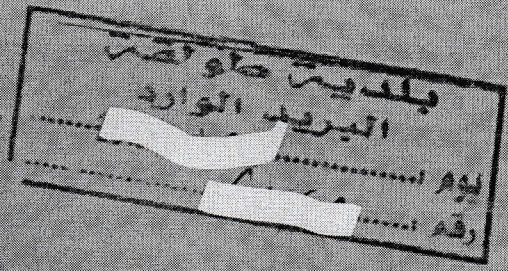 بلدية طولقة
البريد الوارد
يوم :
رقم :